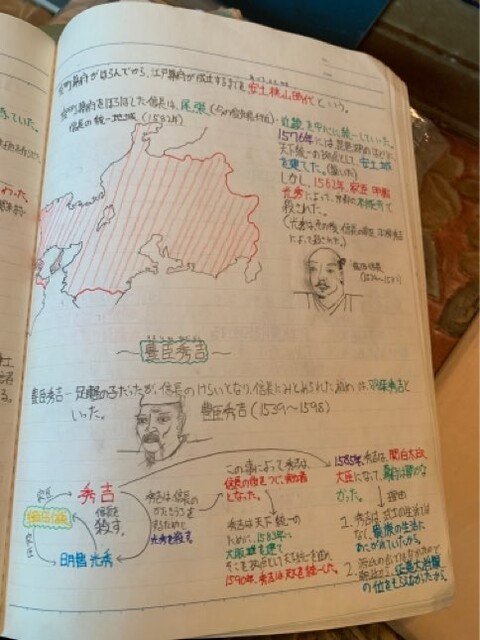 室町幕府がほろんでから、江戸幕府が成立するまでを安土桃山時代という。
室町幕府をほろぼした信長は、尾張
近畿を中心に統一していた。
信長の統一地域(1582年)
1576年には琵琶湖のほとり
天下統一の拠点として、安土城
を建てた。
しかし、1582年、家臣 明智
光秀によって、京都の本能寺で
殺された。
織田信長
豊臣秀吉
豊臣秀吉ー足軽の子だったが、信長のけらいとなり、信長にみとめられた。初めは、羽柴秀吉と
いった。
豊臣秀吉(1539〜1598)
家臣
秀吉
織田信長
家臣
明智光秀
信長を
殺す。
秀吉は信長の
かたきうちを
するために
光秀を殺す。
この事によって秀吉は、
信長の後をつぐ、後継者
となった。
秀吉は天下統一の
ために、1583年に
大阪城を建て
そこを拠点として天下統一を進め
1590年、秀吉は天下を統一した。
1585年、秀吉は、関白太政
大臣になって、幕府は開かな
かった。
理由
1. 秀吉は、武士の生活では
なく、貴族の生活に
あこがれていたから。
2. 源氏の出ではなかったので
征夷大将軍
の位をもらえなかったから。